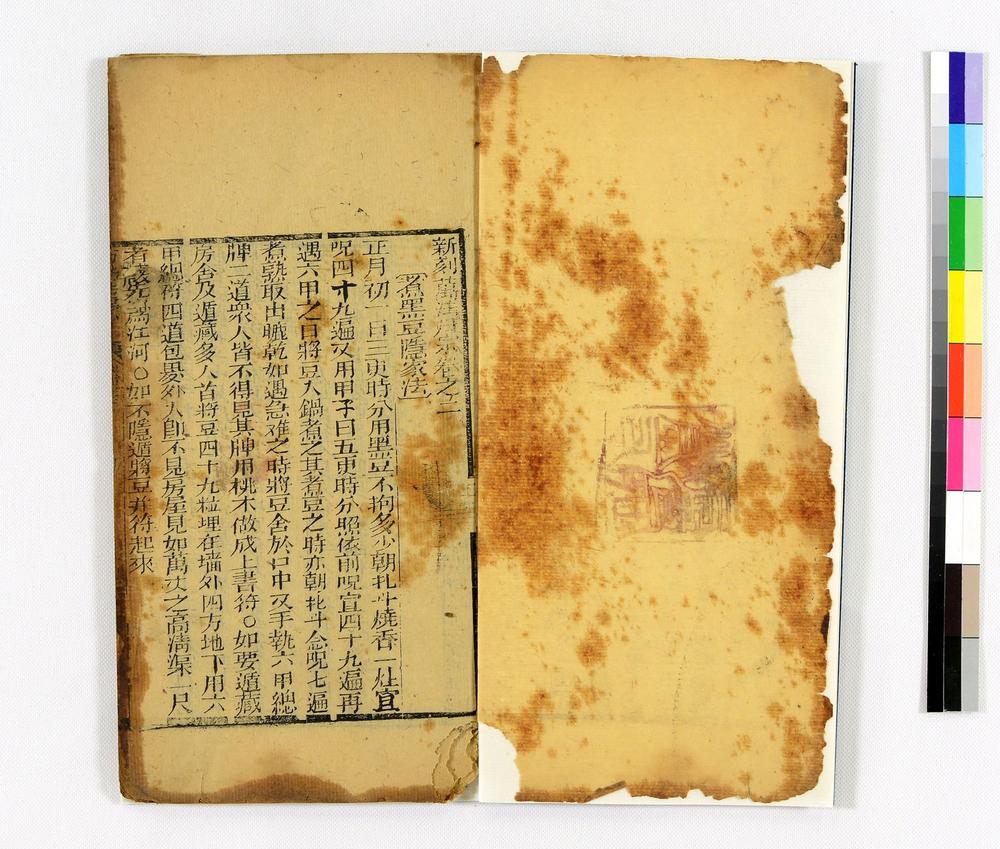 新刻萬法歸宗卷之二
煮黑豆隱家法
正月初一日三更時分用黑豆不拘多少朝北斗燒香一炷宣
呪四十九遍又用甲子日五更時分照依前呪宣四十九遍再
遇六甲之日將豆入鍋煮之其煮豆之時亦朝北斗念呪七遍
煮熟取出晒乾如遇急難之時將豆含於口中又手執六甲總
牌二道衆人皆不得見其牌用桃木做成上書符〇如要遁藏
房舍及遁藏多人首將豆四十九粒埋在墻外四方地下用六
甲總符四道包褁外人即不見房屋見如萬丈之高溝渠一尺
者變為江河〇如不隱遁將豆并符起來